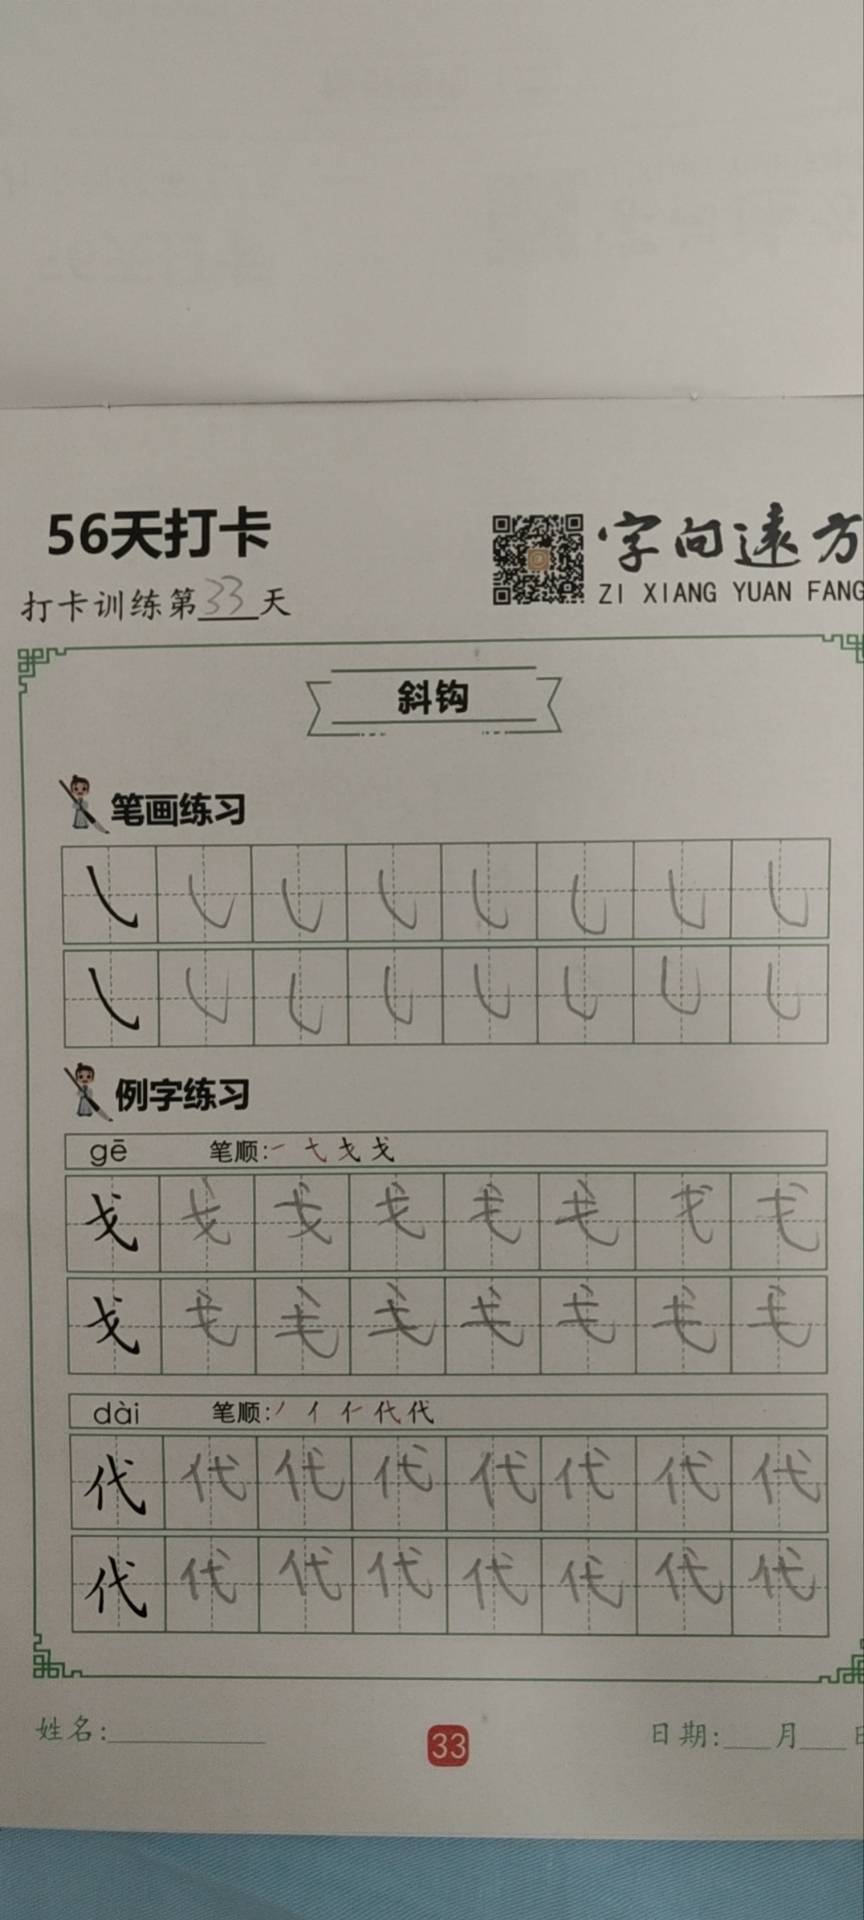 56天打卡
字向遠方
打卡训练第33天
ZI XIANG YUAN FANG
斜钩
笔画练习
㇂ ㇂ ㇂ ㇂ ㇂ ㇂ ㇂ ㇂
㇂ ㇂ ㇂ ㇂ ㇂ ㇂ ㇂ ㇂
例字练习
gē 笔顺: 一 弋 戈 戈
戈 戈 戈 戈 戈 戈 戈 戈
戈 戈 戈 戈 戈 戈 戈 戈
dài 笔顺: 丿 亻 仁 代 代
代 代 代 代 代 代 代 代
代 代 代 代 代 代 代 代
姓名:
33
日期: 月 日